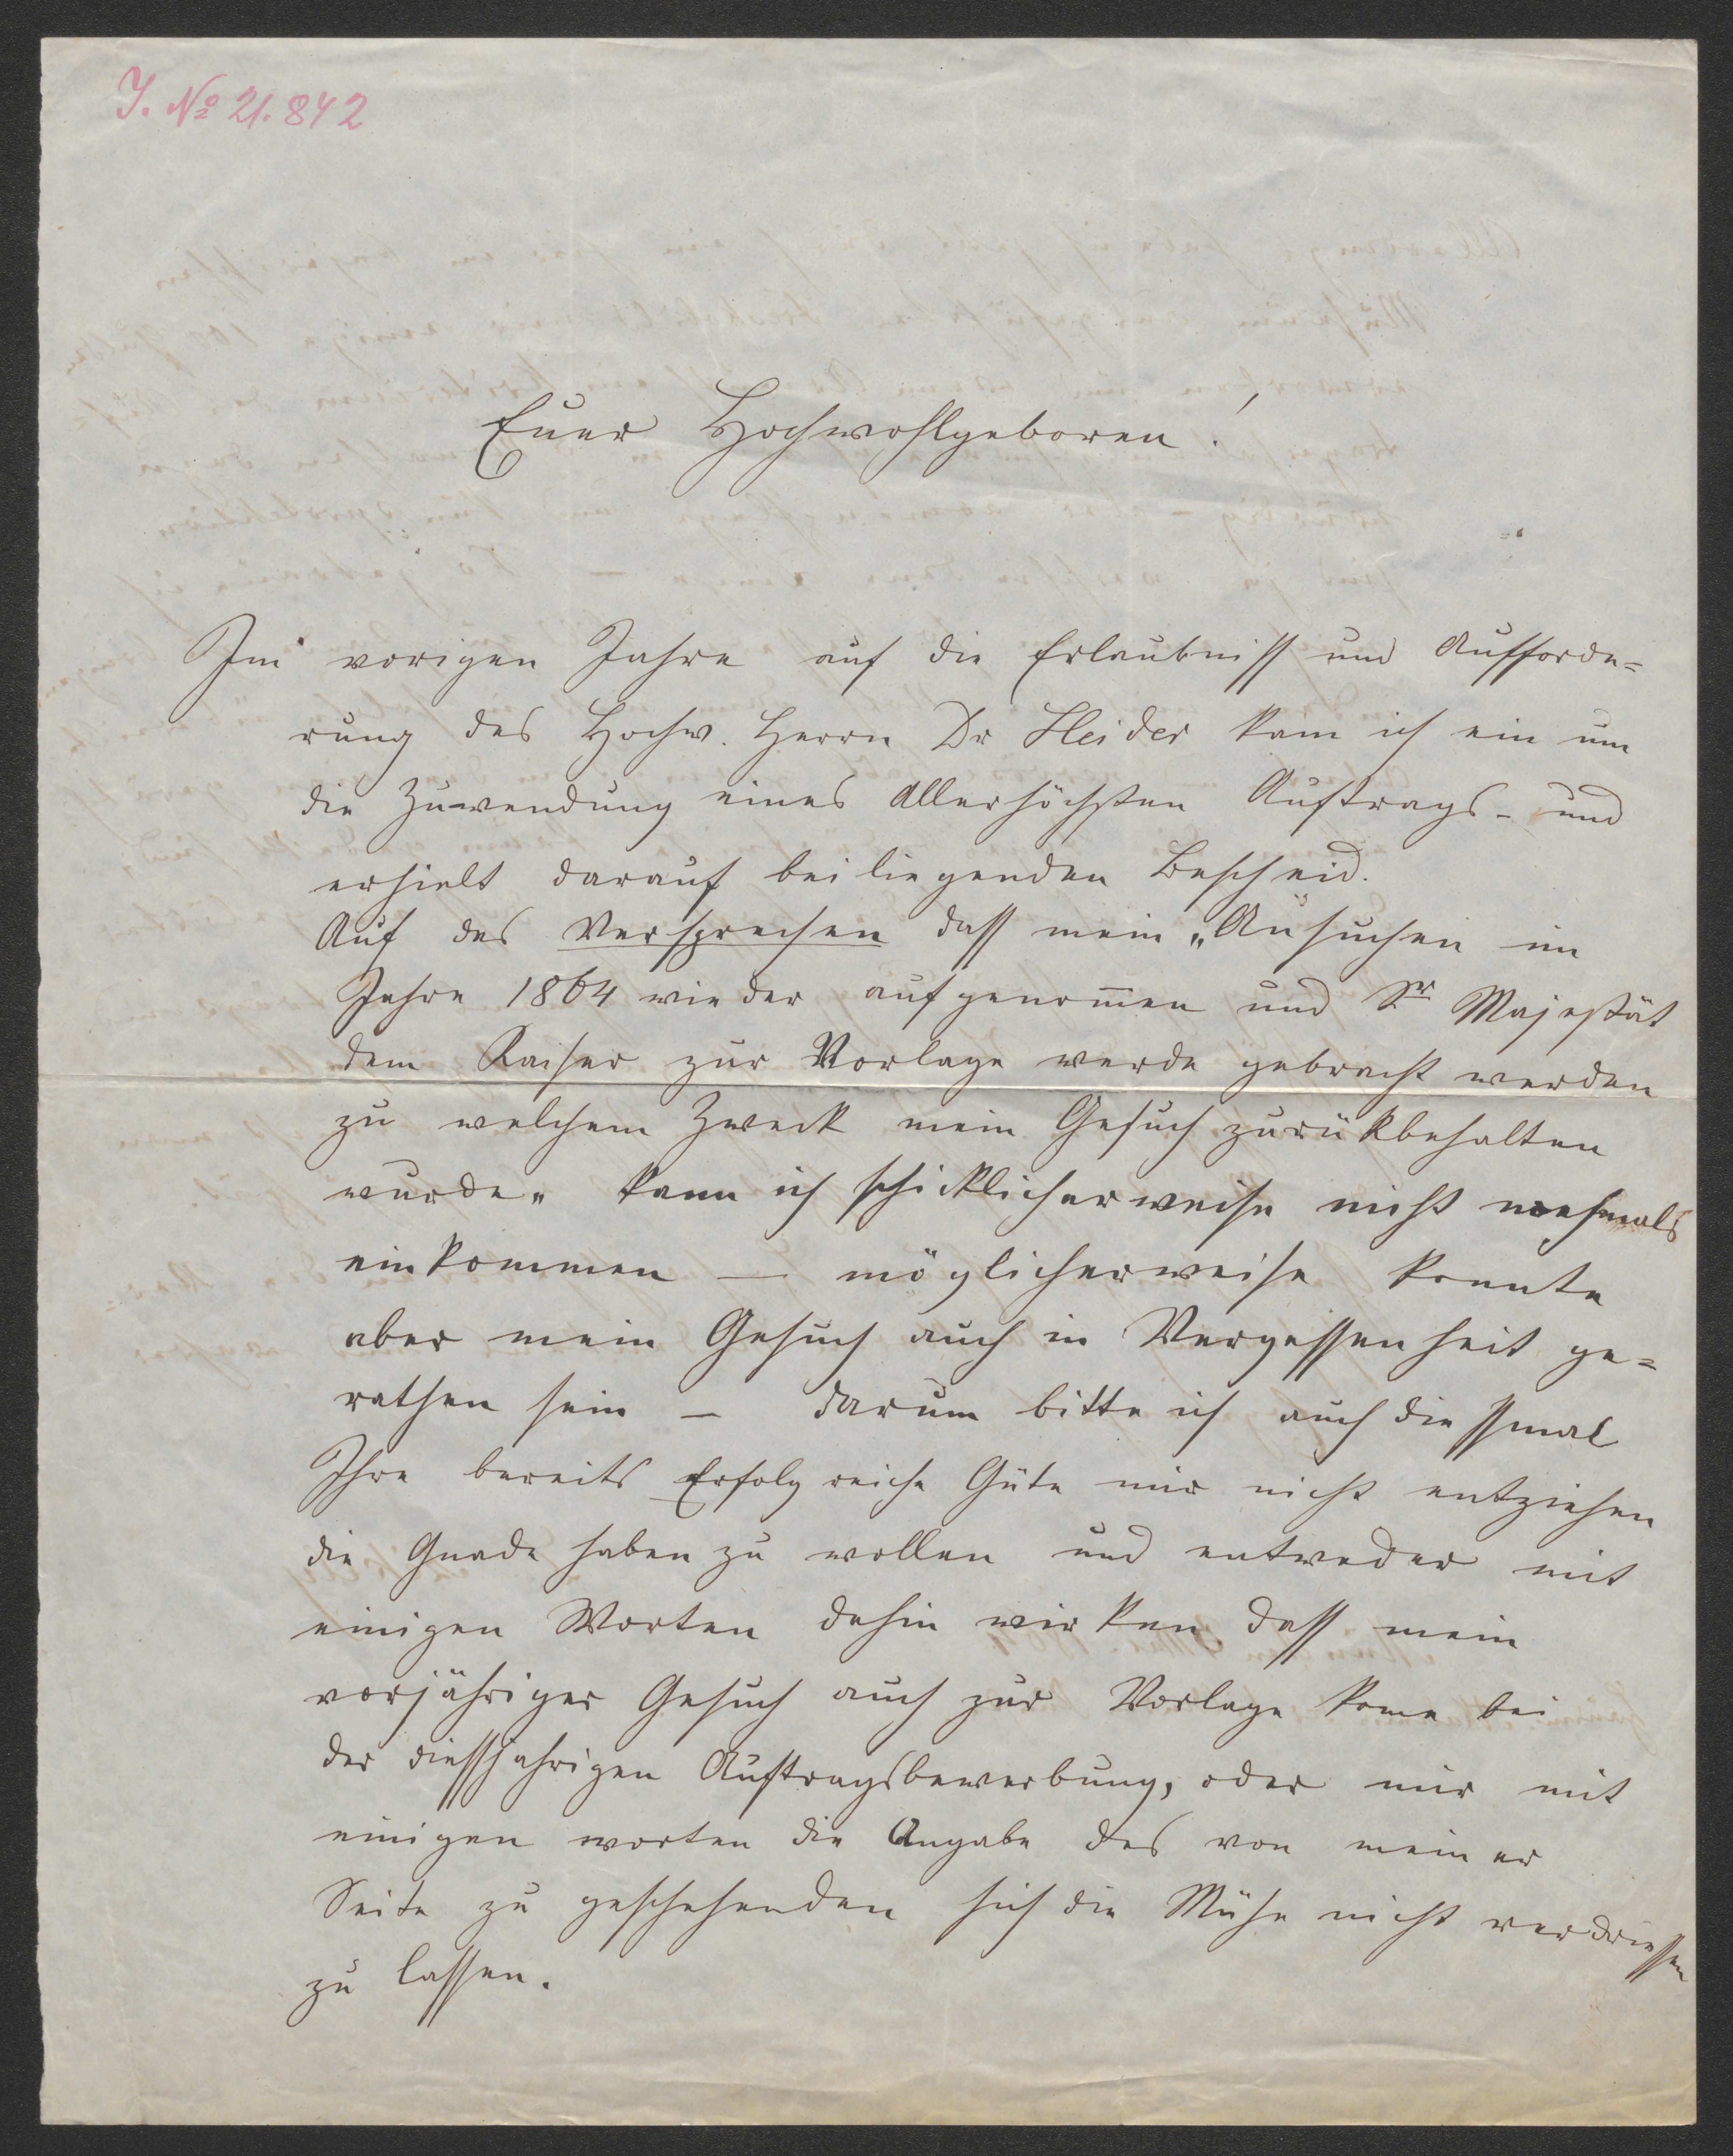 J. № 21.842
Euer Hochwohlgeboren!
Im vorigen Jahre auf die Erlaubniss und Aufforde=
rung des Hochw. Herrn Dr Heider kam ich ein um
die Zuwendung eines Allerhöchsten Auftrags - und
erhielt darauf beiliegenden Bescheid.
Auf das Versprechen dass mein „Ansuchen im
Jahre 1864 wieder aufgenom̄en und Sr Majestät
dem Kaiser zur Vorlage werde gebracht werden
zu welchem Zweck mein Gesuch zurükbehalten
wurde„ kann ich schicklicherweise nicht nochmals
einkommen — möglicherweise konnte
aber mein Gesuch auch in Vergessenheit ge=
rathen sein — darum bitte ich auch diessmal
Ihre bereits Erfolgreiche Güte mir nicht entziehen
die Gnade haben zu wollen und entweder mit
einigen Worten dahin wirken dass mein
vorjähriges Gesuch auch zur Vorlage kome bei
der diessjahrigen Auftragsbewerbung, oder mir mit
einigen worten die Angabe des von meiner
Seite zu geschehenden sich die Mühe nicht verdriessen
zu lassen.